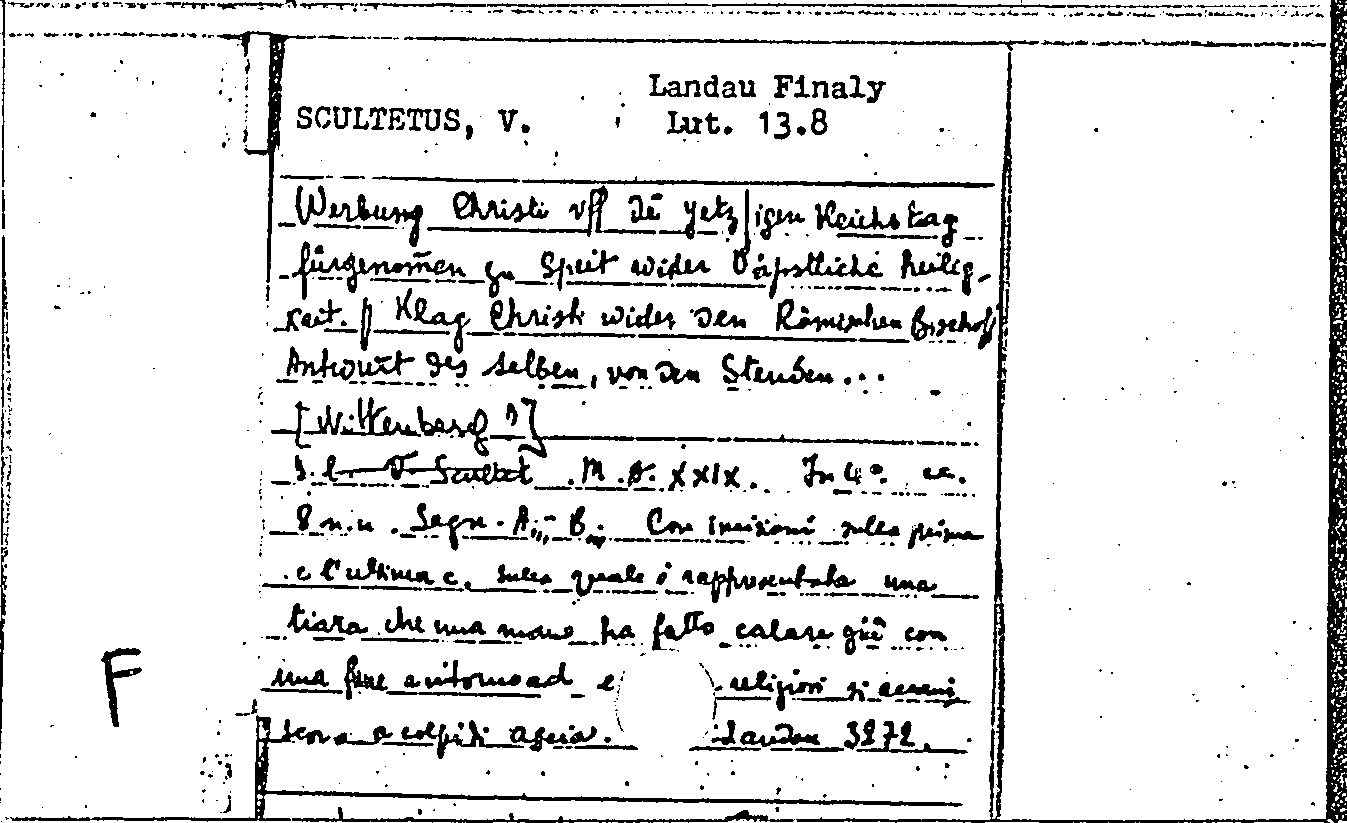 Landau Finaly
SCULTETUS, V. Lut. 13.8
Werbung Christi vff dē yetz|igen Reichstag
fürgenom̄en zu Speir wider Bäpstliche heilig-
keit. || Klag Christi wider den Römischen Bischoff
Antwort des selben, von den Stenden...
[Wittenberg ?]
s.l. V. Scultet M.D.XXIX. In 4°. cc.
8 n.n. Segn. A, B. Con incisioni sulla prima
e l'ultima c. sulla quale è rappresentata una
tiara che una mano ha fatto calare giù con
una fune e intorno ad e religiosi si accani
scono a colpi di ascia. Landau 3272.
F